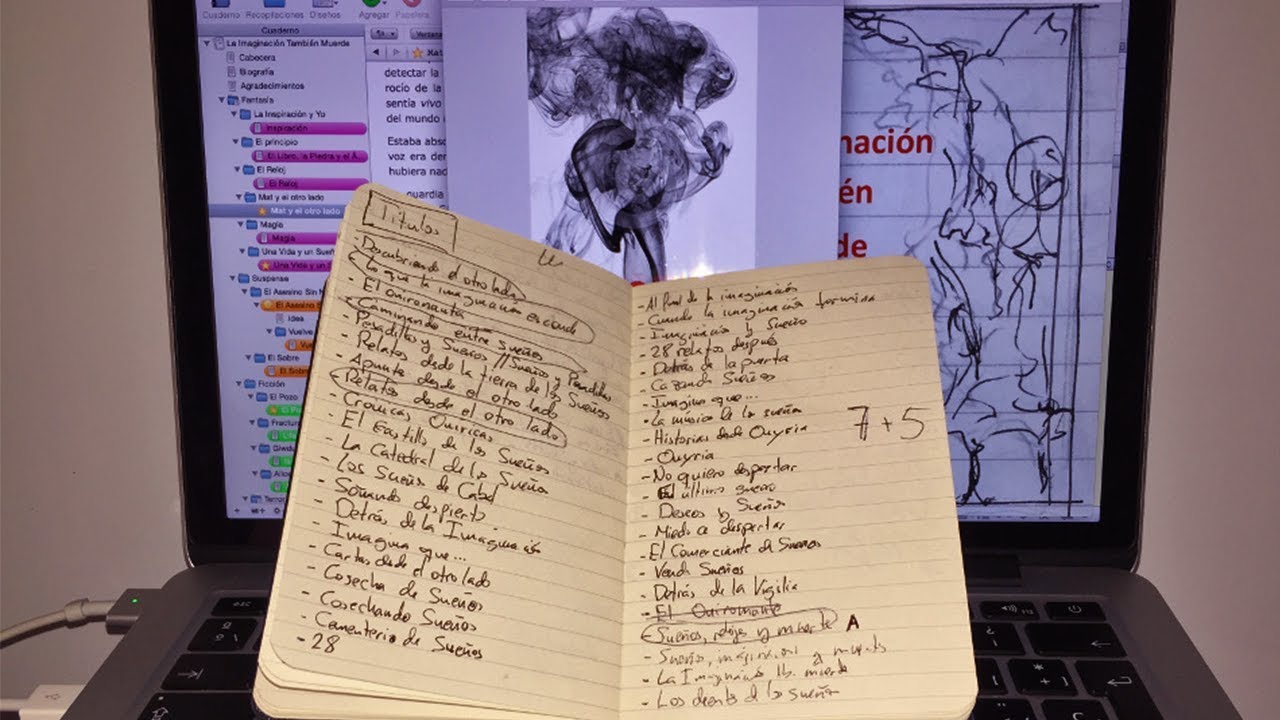 Cuaderno Recopilaciones Diseños Agregar Papelera
Cuaderno
La Imaginación También Muerde
Cabecera
Biografía
Agradecimientos
Fantasía
La Inspiración y Yo
Inspiración
El principio
El Libro, la Piedra y el Á...
El Reloj
El Reloj
Mat y el otro lado
Mat y el otro lado
Magia
Magia
Una Vida y un Sueñ
Una Vida y un
Suspense
El Asesino Sin N
El Asesino S
Idea
Vuelve
Vue
El Sobre
El Sobre
Ficción
El Pozo
El Po
Fractur
Terro
Ventana
detectar la
rocío de la
sentia vivo
del mundo
Estaba abs
voz era der
hubiera nad
guardia
nación
én
de
Títulos
- Descubriendo el otro lado
- Lo que la imaginación esconde
- El Onironauta
- Caminando entre sueños
- Pesadillas y Sueños // Sueños y Pesadillas
- Relatos desde la tierra de los Sueños
- Apuntes desde el otro lado
- Relatos desde el otro lado
- Crónicas Oníricas
- El Castillo de los Sueños
- La Catedral de los Sueños
- Los Sueños de
- Soñando despierto
- Detrás de la Imaginación
- Imagina que...
- Cartas desde el otro lado
- Cosecha de Sueños
- Cosechando Sueños
- Cementerio de Sueños
- 28
- Al final de la imaginación
- Cuando la imaginación termina
- Imaginación y Sueño
- 28 relatos después
- Detrás de la puerta
- Cazando Sueños
- Imagina que...
- La música de los sueños
- Historias desde Onyria
- Onyria
- No quiero despertar
- El último sueño
- Deseos y Sueños
- Miedo a despertar
- El Comerciante de Sueños
- Vendo Sueños
- Detrás de la Vigilia
- El Oniromante
- Sueños, relojes y muerte A
- Sueños, imaginación y muerte
- La Imaginación tb. muerde
- Los de los sueños
7 + 5